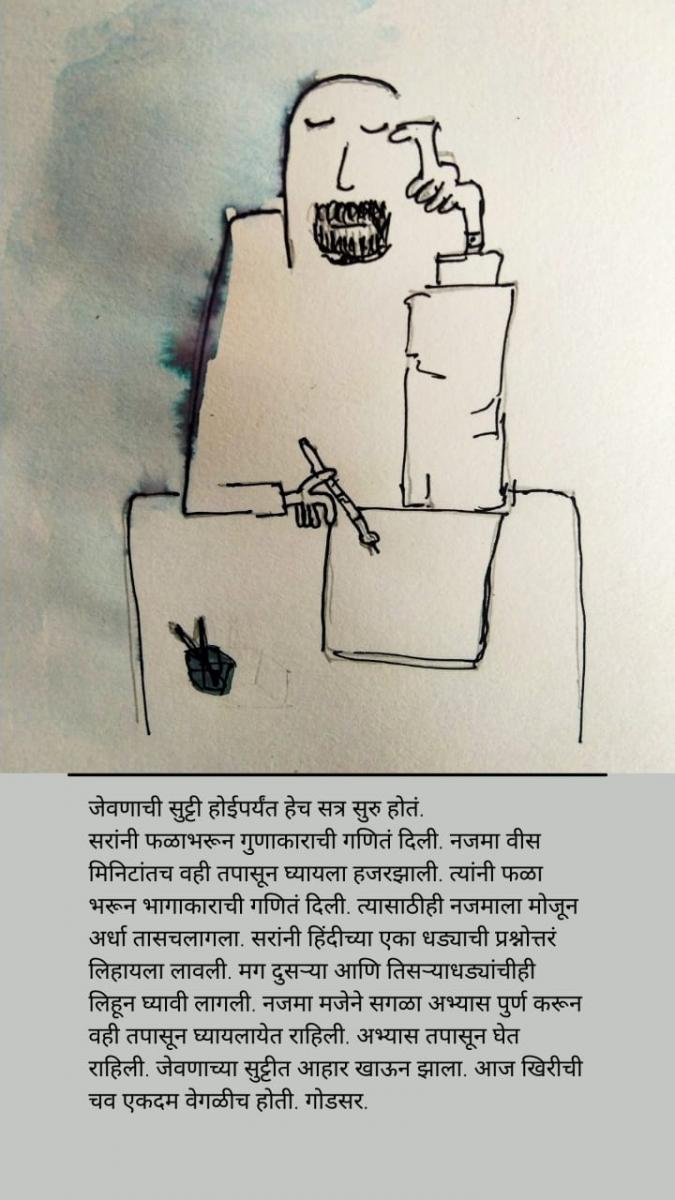 जेवणाची सुट्टी होईपर्यंत हेच सत्र सुरु होतं.
सरांनी फळाभरून गुणाकाराची गणितं दिली. नजमा वीस
मिनिटांतच वही तपासून घ्यायला हजरझाली. त्यांनी फळा
भरून भागाकाराची गणितं दिली. त्यासाठीही नजमाला मोजून
अर्धा तासचलागला. सरांनी हिंदीच्या एका धड्याची प्रश्नोत्तरं
लिहायला लावली. मग दुसऱ्या आणि तिसऱ्याधड्यांचीही
लिहून घ्यावी लागली. नजमा मजेने सगळा अभ्यास पुर्ण करून
वही तपासून घ्यायलायेत राहिली. अभ्यास तपासून घेत
राहिली. जेवणाच्या सुट्टीत आहार खाऊन झाला. आज खिरीची
चव एकदम वेगळीच होती. गोडसर.